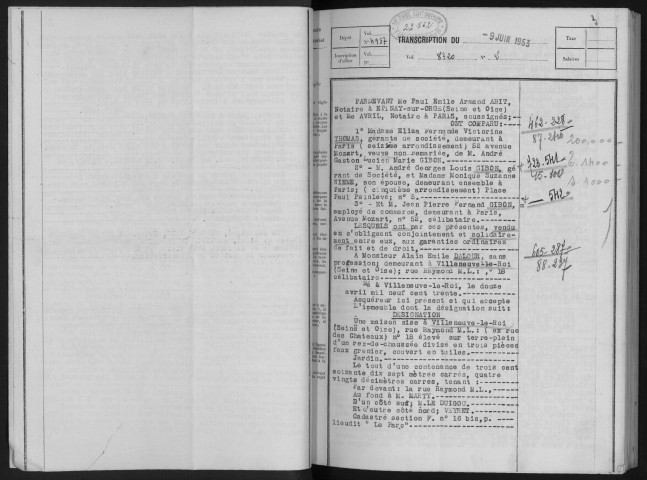 Dépôt
Vol.
n° 4937
Inscription
d'office
Vol.
n°
22 562
TRANSCRIPTION DU - 9 JUIN 1953
Vol. 8420 n° 2
Taxe
Salaires
3
PARDEVANT Me Paul Emile Armand ABIT,
Notaire à EPINAY-sur-ORGE(Seine et Oise)
et Me AVRIL, Notaire à PARIS, soussignés;--
ONT COMPARU:----
1° Madame Elisa Fernande Victorine
THOMAS, gérante de société, demeurant à
Paris ( seizième arrondissement) 52 avenue
Mozart, veuve non remariée, de M. André
Gaston Lucien Marie GIBON.-----------
2°- M. André Georges Louis GIBON, gé
rant de Société, et Madame Monique Suzanne
son épouse, demeurant ensemble à
Paris; ( cinquième arrondissement) Place
Paul Painlevé; n° 5.------------
3°- Et M. Jean Pierre Fernand GIBON,
employé de commerce, demeurant à Paris,
Avenue Mozart, n° 52, célibataire.--------
LESQUELS ont par ces présentes, vendu
en s'obligeant conjointement et solidaire-
ment entre eux, aux garanties ordinaires
de fait et de droit,---------------
A Monsieur Alain Emile sans
profession; demeurant à Villeneuve-le-Roi
(Seine et Oise); rue Raymond M.L.: ,° 18
célibataire.----------------
Né à Villeneuve-le-Roi, le douze
avril mil neuf cent trente.----------
Acquéreur ici présent et qui accepte
L'immeuble dont la désignation suit:
DESIGNATION
Une maison sise à Villeneuve-le-Roi
(Seine et Oise), rue Raymond M.L.: ( ex rue
des Chateaux) n° 18 élevé sur terre-plein
d'un rez-de-chaussée divisé en trois pièces
faux grenier, couvert en tuiles.--------
Jardin.--------------------
Le tout d'une contenance de trois cent
soixante dix sept mètres carrés, quatre
vingts décimètres carrés, tenant :--------
Par devant: la rue Raymond M.L.,-----
Au fond à M. MARTY.-------------
D'un côté sud; M.LE DUIGOU.--------
Et d'autre côté nord; VEYRET.--------
Cadastré section F. n° 16 bis,p. ----
lieudit " Le Parc"-----------------
462-328
200.000
323-541
542
605-287
88-287